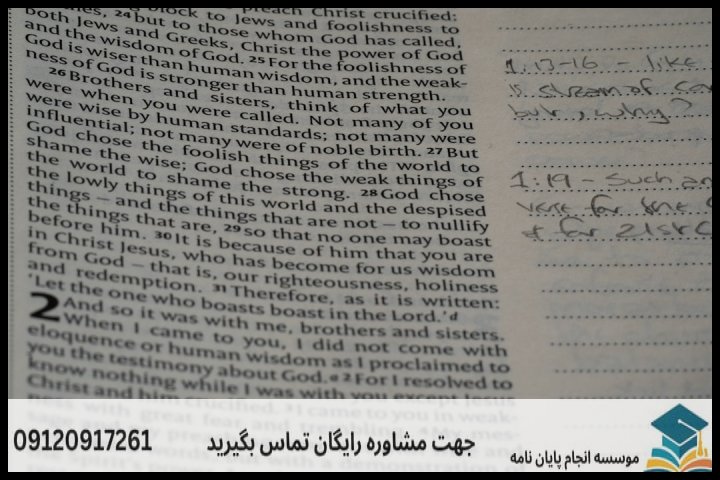 preach Christ crucified:
block to Jews and foolishness to
24 but to those whom God has called,
both Jews and Greeks, Christ the power of God
and the wisdom of God. 25 For the foolishness of
God is wiser than human wisdom, and the weak-
ness of God is stronger than human strength.
26 Brothers and sisters, think of what you
were when you were called. Not many of you
were wise by human standards; not many were
influential; not many were of noble birth. 27 But
God chose the foolish things of the world to
shame the wise; God chose the weak things of
the world to shame the strong. 28 God chose
the lowly things of this world and the despised
things – and the things that are not – to nullify
the things that are, 29 so that no one may boast
before him. 30 It is because of him that you are
in Christ Jesus, who has become for us wisdom
from God – that is, our righteousness, holiness
and redemption. 31 Therefore, as it is written:
'Let the one who boasts boast in the Lord.' d
2 And so it was with me, brothers and sisters.
When I came to you, I did not come with
eloquence or human wisdom as I proclaimed to
you the testimony about God. a 2 For I resolved to
know nothing while I was with you except Jesus
Christ and him crucified. 3 I came to you in weak-
ness with great fear and trembling.
1:13-16 - like
is stream of
but, why?
1:19 - Such an
verse for the
& for 21st C
موسسه انجام پایان نامه
جهت مشاوره رایگان تماس بگیرید
09120917261